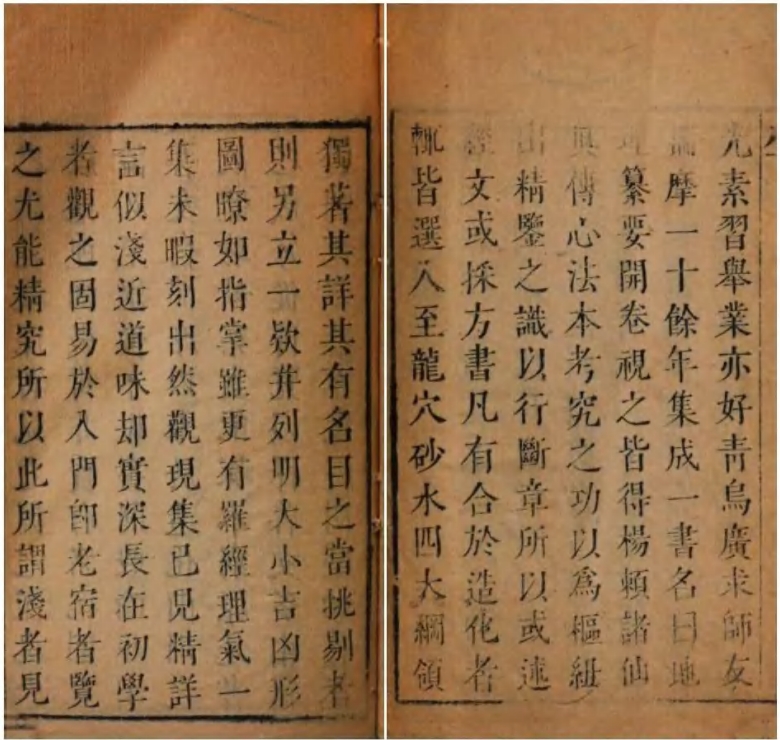 素習舉業亦好青烏廣求師友
揣摩一十餘年集成一書名曰地
理纂要開卷視之皆得楊賴諸仙
真傳心法本考究之功以爲樞紐
出精鑒之識以行斷章所以或述
經文或採方書凡有合於造化者
輒皆選入至龍穴砂水四大綱領
獨著其詳其有名目之當挑剔者
則另立一欵并列明大小吉凶形
圖瞭如指掌雖更有羅經理氣一
集未暇刻出然觀現集已見精詳
言似淺近道味却實深長在初學
者觀之固易於入門即老宿者覽
之尤能精究所以此所謂淺者見